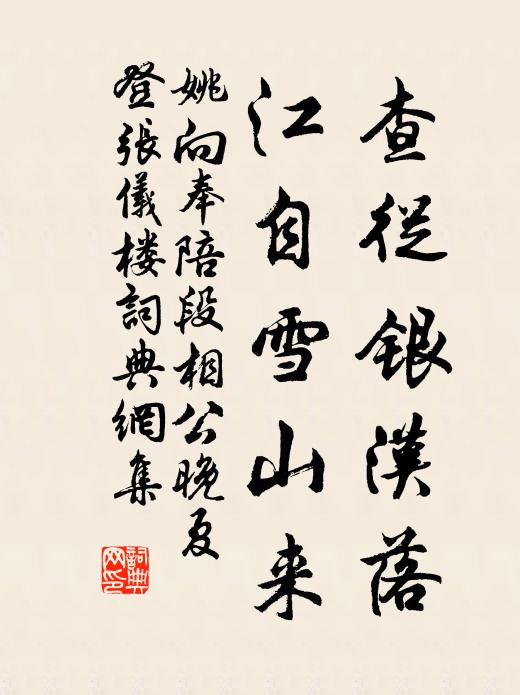 查從銀漢落
江自雪山来
姚向奉陪段相公晚夏
登張儀楼詞典網集
詞典
网印